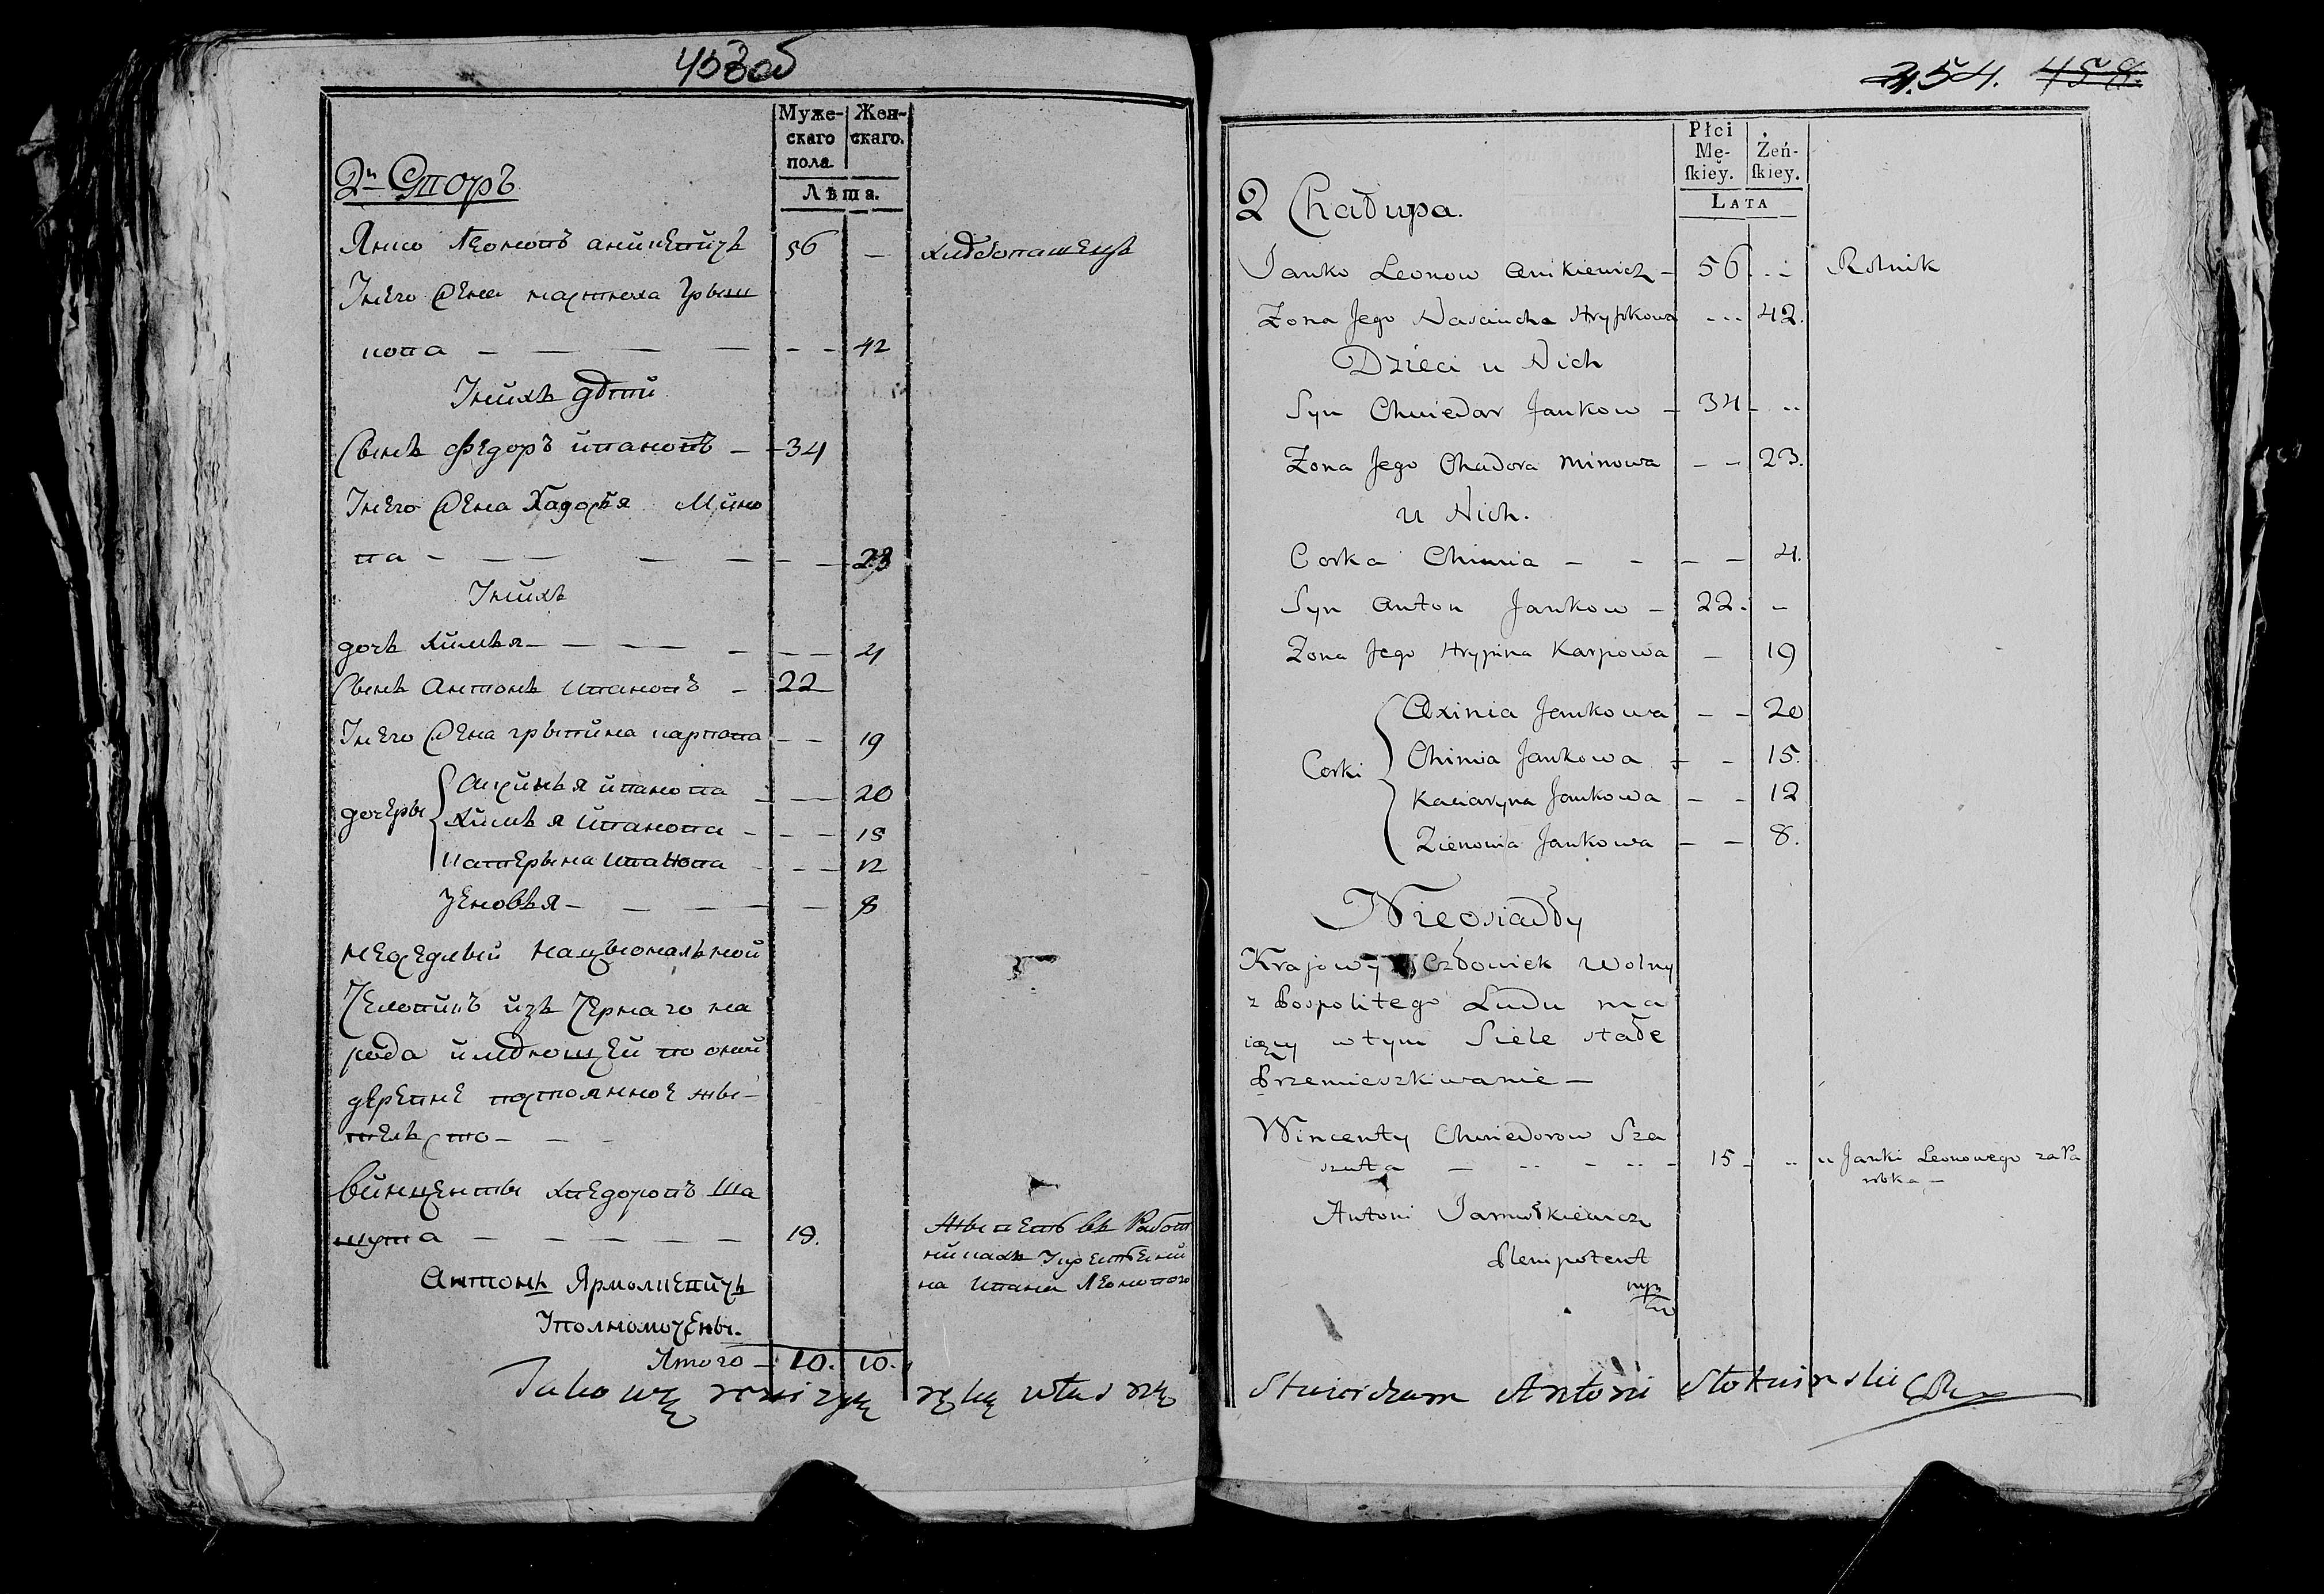 453об
Муже-
скаго
пола
Жен-
скаго.
Лѣта.
2й Дворъ
Янко Леоновъ аникевичь 56 — хлѣбопашецъ
Унего жена настюха Грыш
кова — — — — — — 42
Унихъ дѣти
Сынъ Федоръ ивановъ — 34
Унего жена Хадосья Мино
ва — — — — — — — 23
Унихъ
дочь химья — — — — — — — 4
Сынъ Антонъ ивановъ — 22
Унего жена грыпина карпова — — 19
дочеры
Аксинья иванова — — 20
Химья иванова — — — 15
Катерына иванова — — 12
Зеновья — — — — — 8
неоседлый национальной
Человикъ изъ Чернаго на
рода имѣющей во оной
деревне постоянное жы-
тельство — — -
Винценты хведоровъ Ша
шута — — — — — — 15.
Жыветъ въ Работ
никахъ
на ивана Леонового
Антонъ Ярмолкевичь
Уполномочены.
Итого — 10. 10.
Takowę rewizyę ręką własną
454. 458.
Płci
Mę-
skiey.
Żeń-
skiey.
Lata
2 Chałupa.
Janko Leonow Anikiewicz — 56 .. — Rolnik
Zona Jego Nasciucha Hryszkowa --- 42.
Dzieci u Nich
Syn Chwiedar Jankow — 34 — ..
Zona Jego Chadora Minowa — — 23.
u Nich.
Corka Chimia — — — — 4.
Syn Anton Jankow — 22. —
Zona Jego Hrypina Karpowa — 19
Corki
Axinia Jankowa — — 20
Chimia Jankowa — — 15.
Kaciaryna Jankowa — — 12
Zienowia Jankowa — — 8.
Nieosiadły
Krajowy Człowiek Wolny
z Pospolitego Ludu ma
iący w tym Siele stałe
Przemieszkiwanie —
Wincenty Chwiedorow Sza
szuta — .. — .. — 15 — .. u Janki Leonowego za Pa
robka —
Antoni Jarmołkiewicz
Plenipotent
mp
Stwierdzam Antoni